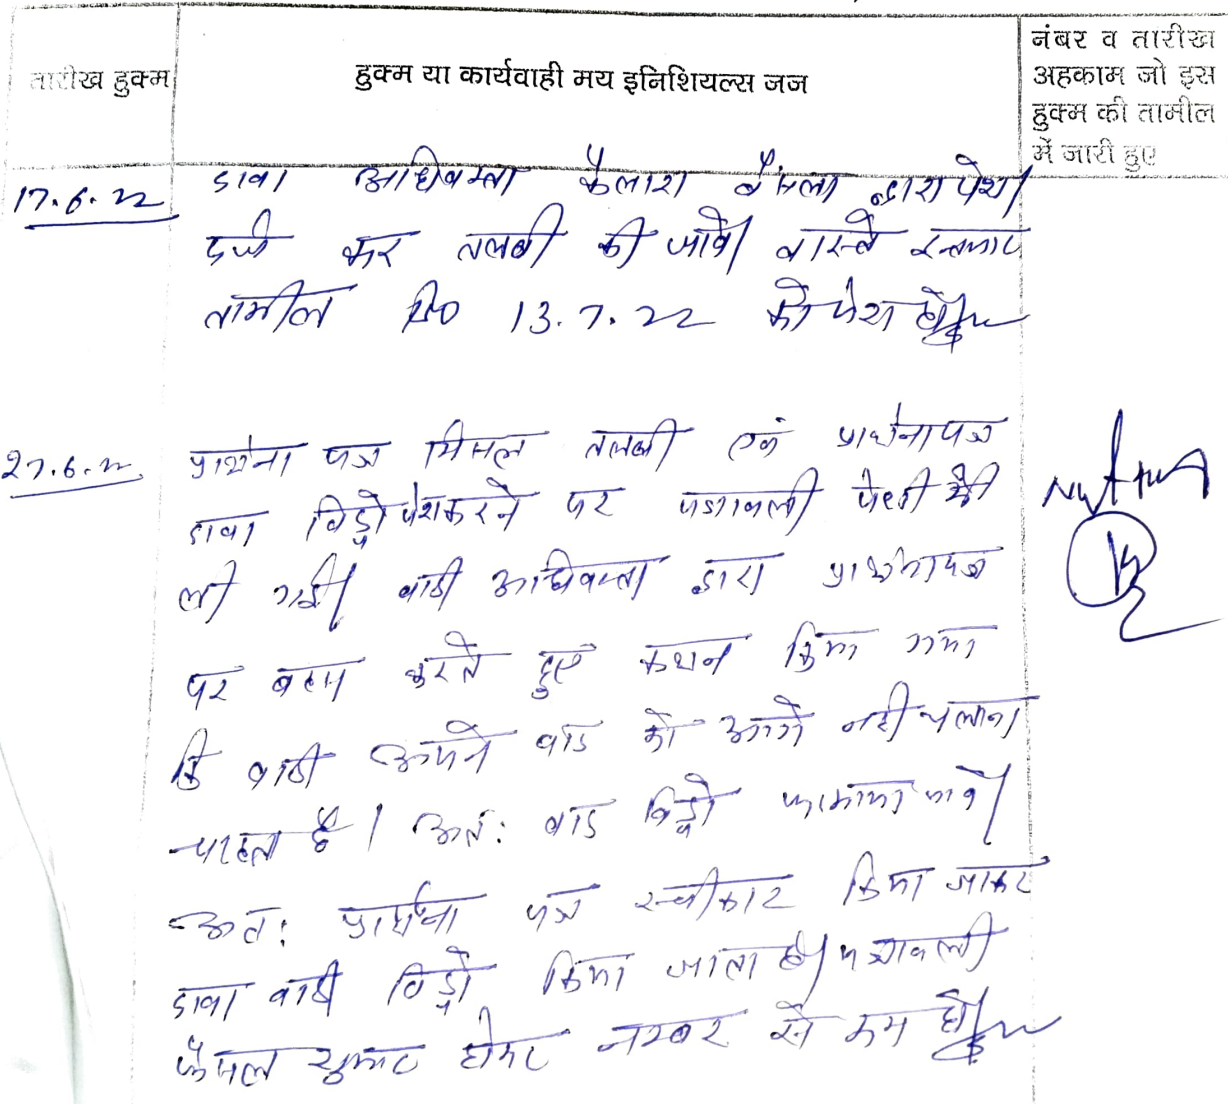 तारीख हुक्म
हुक्म या कार्यवाही मय इनिशियल्स जज
नंबर व तारीख
अहकाम जो इस
हुक्म की तामील
में जारी हुए
17.6.22
दावा अधिवक्ता कैलाश बैंसला द्वारा पेश।
दर्ज कर तलबी की जावे। वास्ते इन्तजार
तामील दि० 13.7.22 को पेश हो।
27.6.22
प्रार्थना पत्र मिसल तलबी एवं प्रार्थनापत्र
दावा विड्रो पेश करने पर पत्रावली पेशी में
ली गई। वादी अधिवक्ता द्वारा प्रार्थनापत्र
पर बहस करते हुए कथन किया गया
कि वादी अपने वाद को आगे नही चलाना
चाहता है। अत: वाद विड्रो फरमाया जावे।
अत: प्रार्थना पत्र स्वीकार किया जाकर
दावा वादी विड्रो किया जाता है। पत्रावली
फैसल शुमार होकर नम्बर से कम हो।